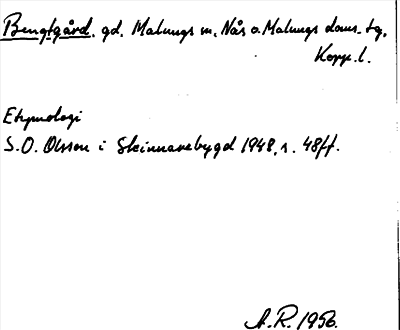 Bengtgård. gd. Malungs sn. Nås o. Malungs doms. tg.
Kopp. l.
Etymologi
S.O. Olsson i Skinnarebygd 1948, s. 48ff.
A.R. 1956.